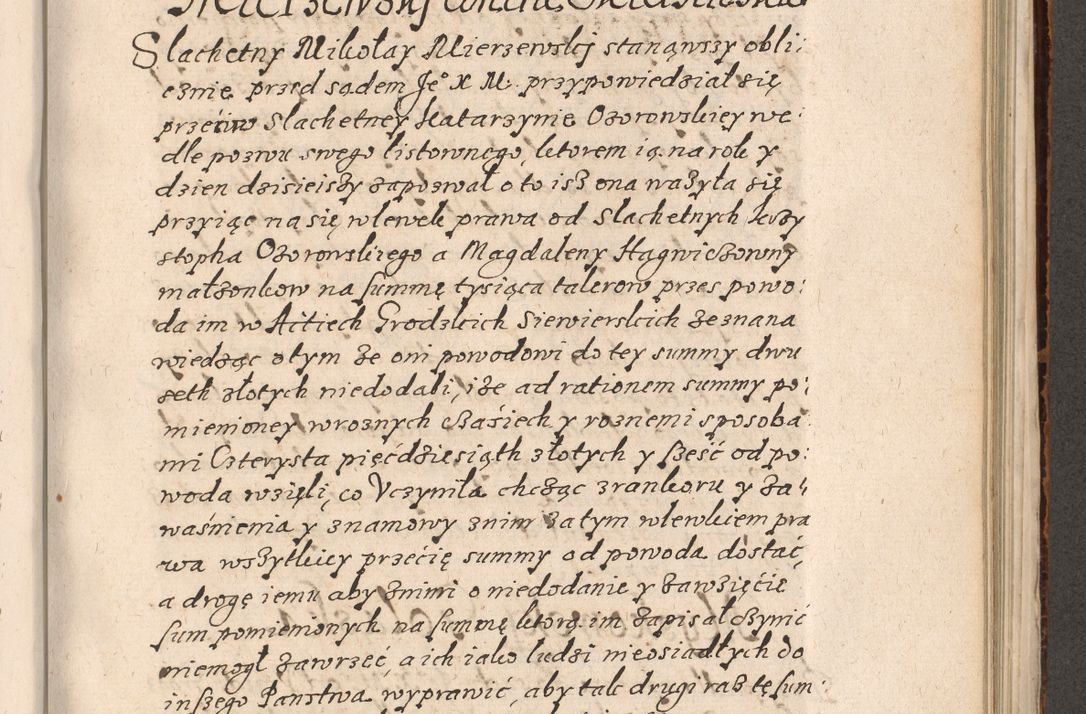 Slachetny Mikołay Mierzewskj stanąwszy obli:
cznie przed sądem Je° X M. przypowiedział się
przeciw Slachetney Katarzynie Ozorowskiey we:
dle pozwu swęgo listownego, ktorem ią na rok y
dzien dzisieiszy zapozwał o to isz ona ważyła się
przyiąc na się wlewek prawa od Slachetnych krzy
stopha Ozorowskiego a Magdaleny Hagwiczowny
małzonkow na summę tysiąca talerow przes powo:
da im w Actiech Grodzkich Siewierskich zeznana
wiedząc o tym ze oni powodowi do tey summy dwu
seth złotych niedodali, ize ad rationem summy po:
mienioney wroznych czasiech y roznemi sposoba
mi Czterysta pięćdziesiąth złotych y sześć od po:
woda wzięli, co Vczyniła chcząc zrankoru y za:
waśnienia y znamowy znimi zatym wlewkiem pra
wa wszytkiey przecię summy od powoda dostać,
a drogę iemu aby znimi o niedodanie y zawzięcie
sum pomienionych na summę ktorą im zapisał czynić
niemogł zawrzeć, a ich iako ludzi nieosiadłych do
inszego Panstwa wyprawić, aby tak drugi raz tę sum: